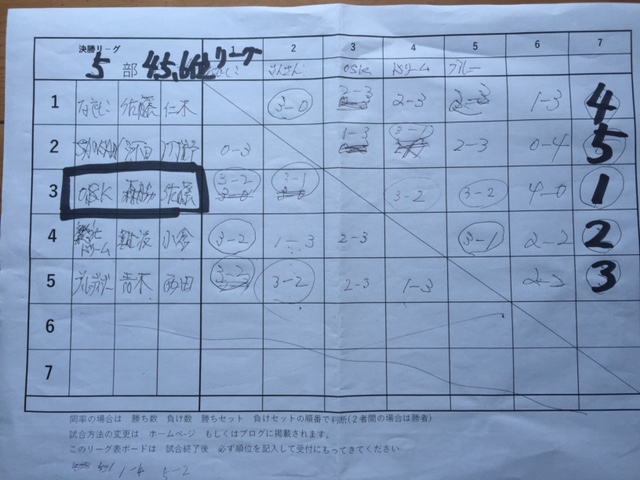 決勝リーグ
5 部 4,5,6位リーグ
1 2 3 4 5 6 7
なでしこ さんさん OSK ドリーム ブルー
1 なでしこ 佐藤 仁木 3-0 2-3 2-3 2-3 1-3 4
2 0-3 1-3 3-1 2-3 0-4 5
3 OSK 森脇 佐藤 3-2 3-1 3-2 3-2 4-0 1
4 ドリーム 難波 小倉 3-2 1-3 2-3 3-1 2-2 2
5 青木 西田 3-2 3-2 2-3 1-3 2-2 3
6
7
同率の場合は 勝ち数 負け数 勝ちセット 負けセットの順番で判断(2者間の場合は勝者)
試合方法の変更は ホームページ もしくはブログに掲載されます。
このリーグ表ボードは 試合終了後 必ず順位を記入して受付にもってきてください
1-4 5-2